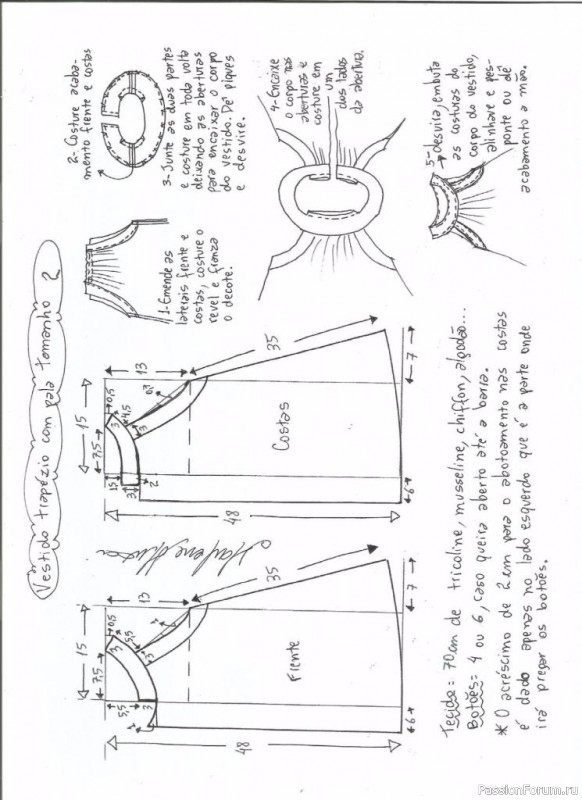 Vestido trapézio com pala tamanho 2
1-Emende as
laterais frente e
costas, costure o
revel e franza
o decote.
2- Costure acaba-
mento frente e costas
3- Junte as duas partes
e costure em toda volta
deixando as aberturas
para encaixar o corpo
do vestido. Dê piques
e desvire.
4-Encaixe
o corpo nas
aberturas e
costure em
um
dos lados
da abertura.
5-desvira, embuta
as costuras do
corpo do vestido,
alinhave e pes-
ponte ou dê
acabamento a mão.
15
7,5
0,5
3
5,5
13
35
5,5
3
2
3
2
Frente
48
6
7
15
7,5
0,5
3
4,5
13
35
15
3
2
3
Costas
48
6
7
Tecido = 70cm de tricoline, musseline, chiffon, algodão...
Botões = 4 ou 6, caso queira aberto até a barra.
* O acréscimo de 2cm para o abotoamento nas costas
é dado apenas no lado esquerdo que é a parte onde
irá pregar os botões.
PassionForum.ru